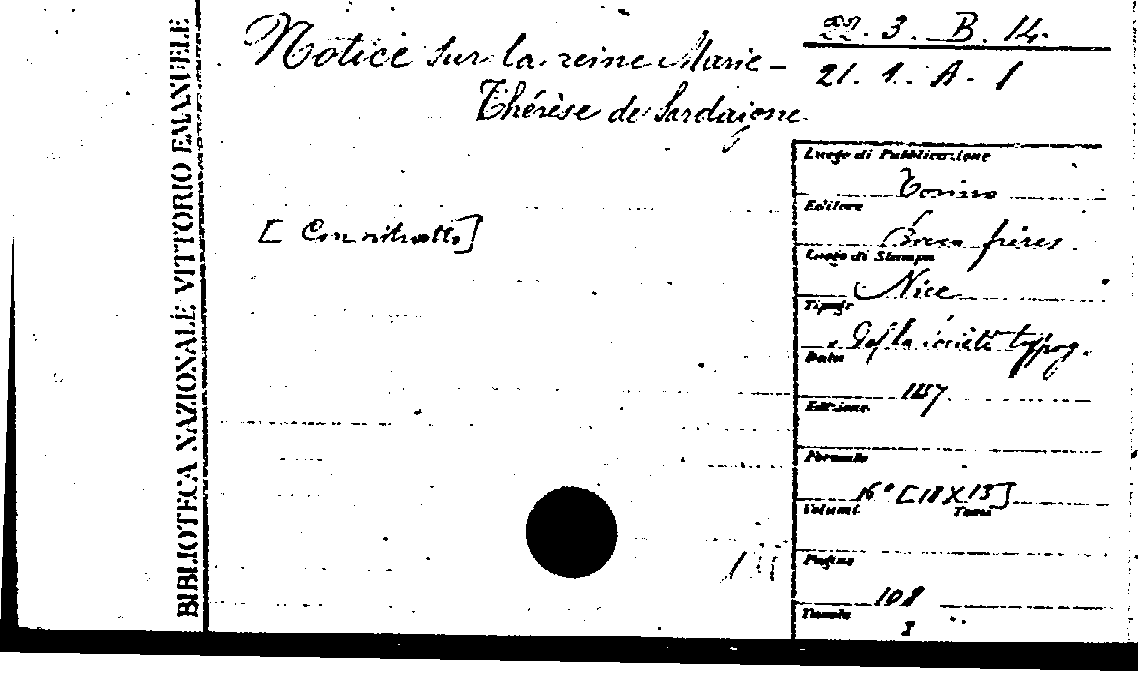 BIBLIOTECA NAZIONALE VITTORIO EMANUELE
Notice sur la reine Marie-
Thérèse de Sardaigne
[Con ritratto]
22. 3. B. 14.
21. 1. A. 1
Luogo di Pubblicazione
Torino
Editore
Bocca frères.
Luogo di Stampa
Nice
Tipogr.
de la société typog.
Data
Edizione
Formato
16° [18X15]
Volumi Tomi
Pagine
108
Tavole
I